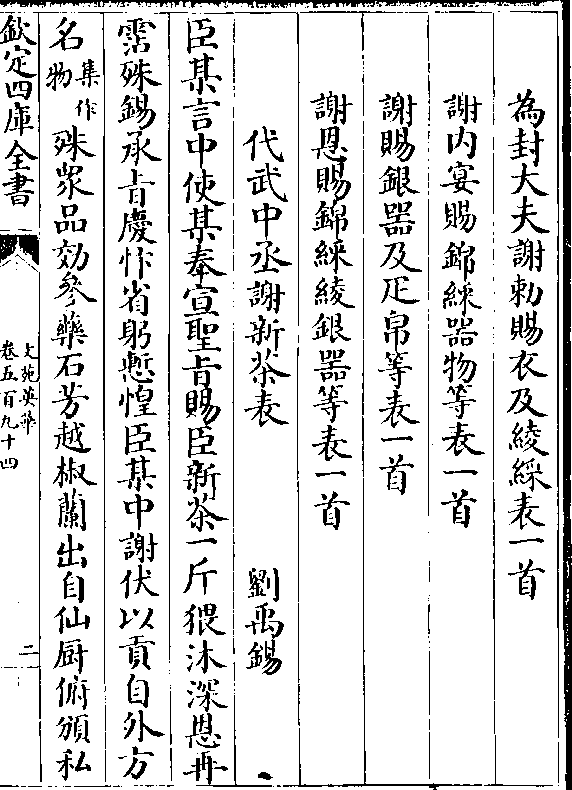 為封大夫謝勅賜衣及綾綵表一首
謝内宴賜錦綵器物等表一首
謝賜銀器及疋帛等表一首
謝恩賜錦綵綾銀器等表一首
代武中丞謝新茶表 劉禹錫
臣某言中使某奉宣聖㫖賜臣新茶一斤猥沐深恩再
霑殊錫承㫖慶忭省躬慙惶臣某中謝伏以貢自外方
名集作物殊衆品効參藥石芳越椒蘭出自仙厨俯頒私
欽定四庫全書
文苑英華
卷五百九十四
二